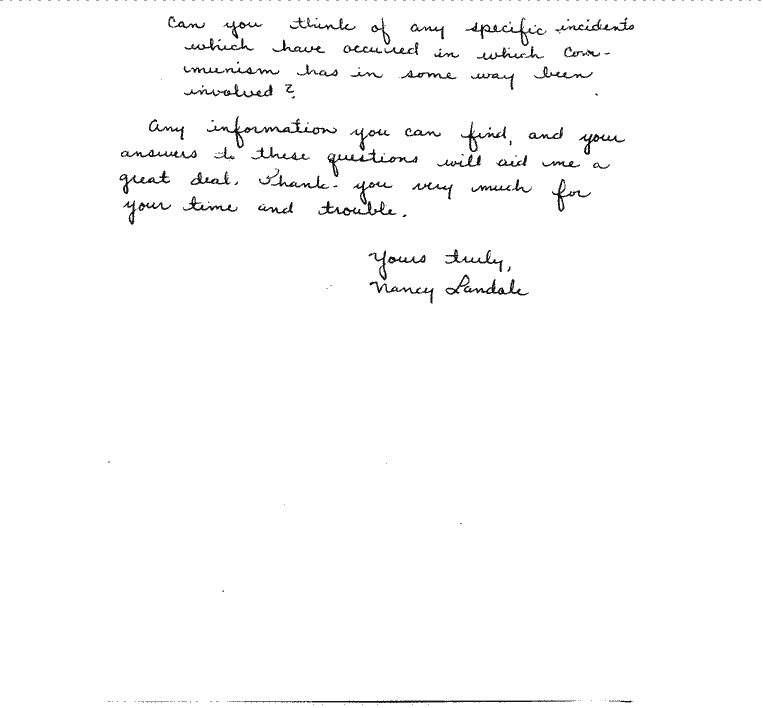 Can you think of any specific incidents
which have occured in which Com-
munism has in some way been
involved?
Any information you can find, and your
answers to these questions will aid me a
great deal. Thank-you very much for
your time and trouble.
Yours truly,
Nancy Landale